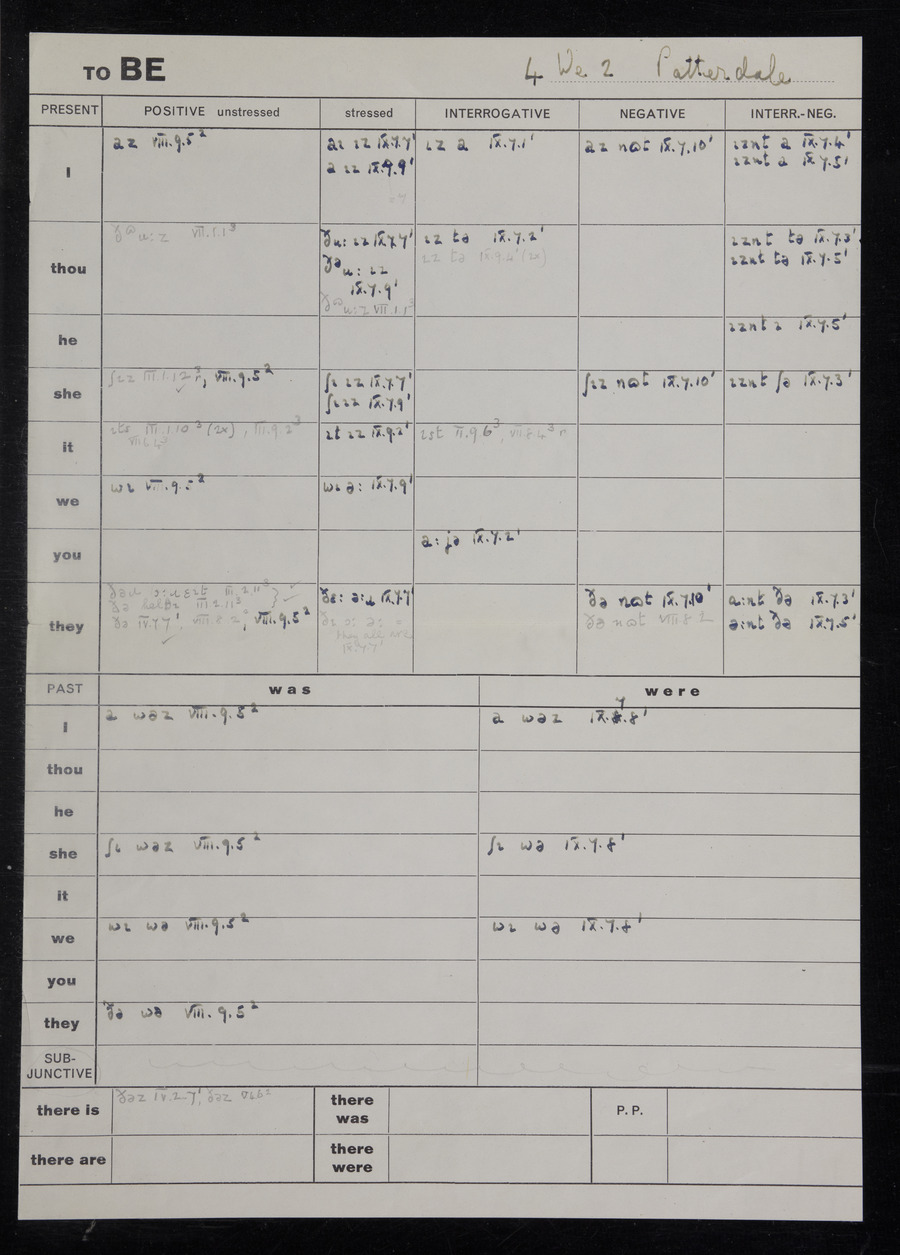 TO BE 4 We 2 Patterdale
PRESENT POSITIVE unstressed stressed INTERROGATIVE NEGATIVE INTERR.-NEG.
I
az VIII.9.5²
aɪ ɪz IX.7.7¹
a ɪz IX.9.9¹
ɪz a IX.7.1¹
az nɒt IX.7.10¹
ɪznt a IX.7.4¹
ɪznt a IX.7.5¹
thou
VII.1.1³
ðu: ɪz IX.7.7¹
ɪz
IX.7.9¹
VII.1.1³
ɪz ðə IX.7.2¹
ɪz tə IX.9.4¹ (2x)
ɪznt tə IX.7.3¹
ɪznt tə IX.7.5¹
he
ɪznt ɪ IX.7.5¹
she
ʃɪz III.1.12³ r, VIII.9.5²
ʃɪ ɪz IX.7.7¹
ʃɪ ɪz IX.7.9¹
ʃɪz nɒt IX.7.10¹
ɪznt ʃə IX.7.3¹
it
ɪts III.1.10³ (2x), III.9.2³
ɪt ɪz IX.9.2¹
ɪst II.9.6³, VII.8.4³ r
we
wɪ VIII.9.5²
wɪ ə: IX.7.9¹
you
a: jə IX.7.2¹
they
III.2.11³
III.2.11³
ðə IV.7.7¹, VIII.8.2, VIII.9.5²
ðɛ: ə:ɹ IX.7.7¹
they all are
IX.7.7¹
ðə nɒt IX.7.10¹
ðə nɒt VIII.8.2
a:nt ðə IX.7.3¹
ə:nt ðə IX.7.5¹
PAST was were
I
a wəz VIII.9.5²
a wəz IX.7.8¹
thou
he
she
ʃɪ wəz VIII.9.5²
ʃɪ wə IX.7.8¹
it
we
wɪ wə VIII.9.5²
wɪ wə IX.7.8¹
you
they
ðə wə VIII.9.5²
SUB-
JUNCTIVE
there is
ðəz IV.2.7¹, ðəz
there
was
P.P.
there are
there
were